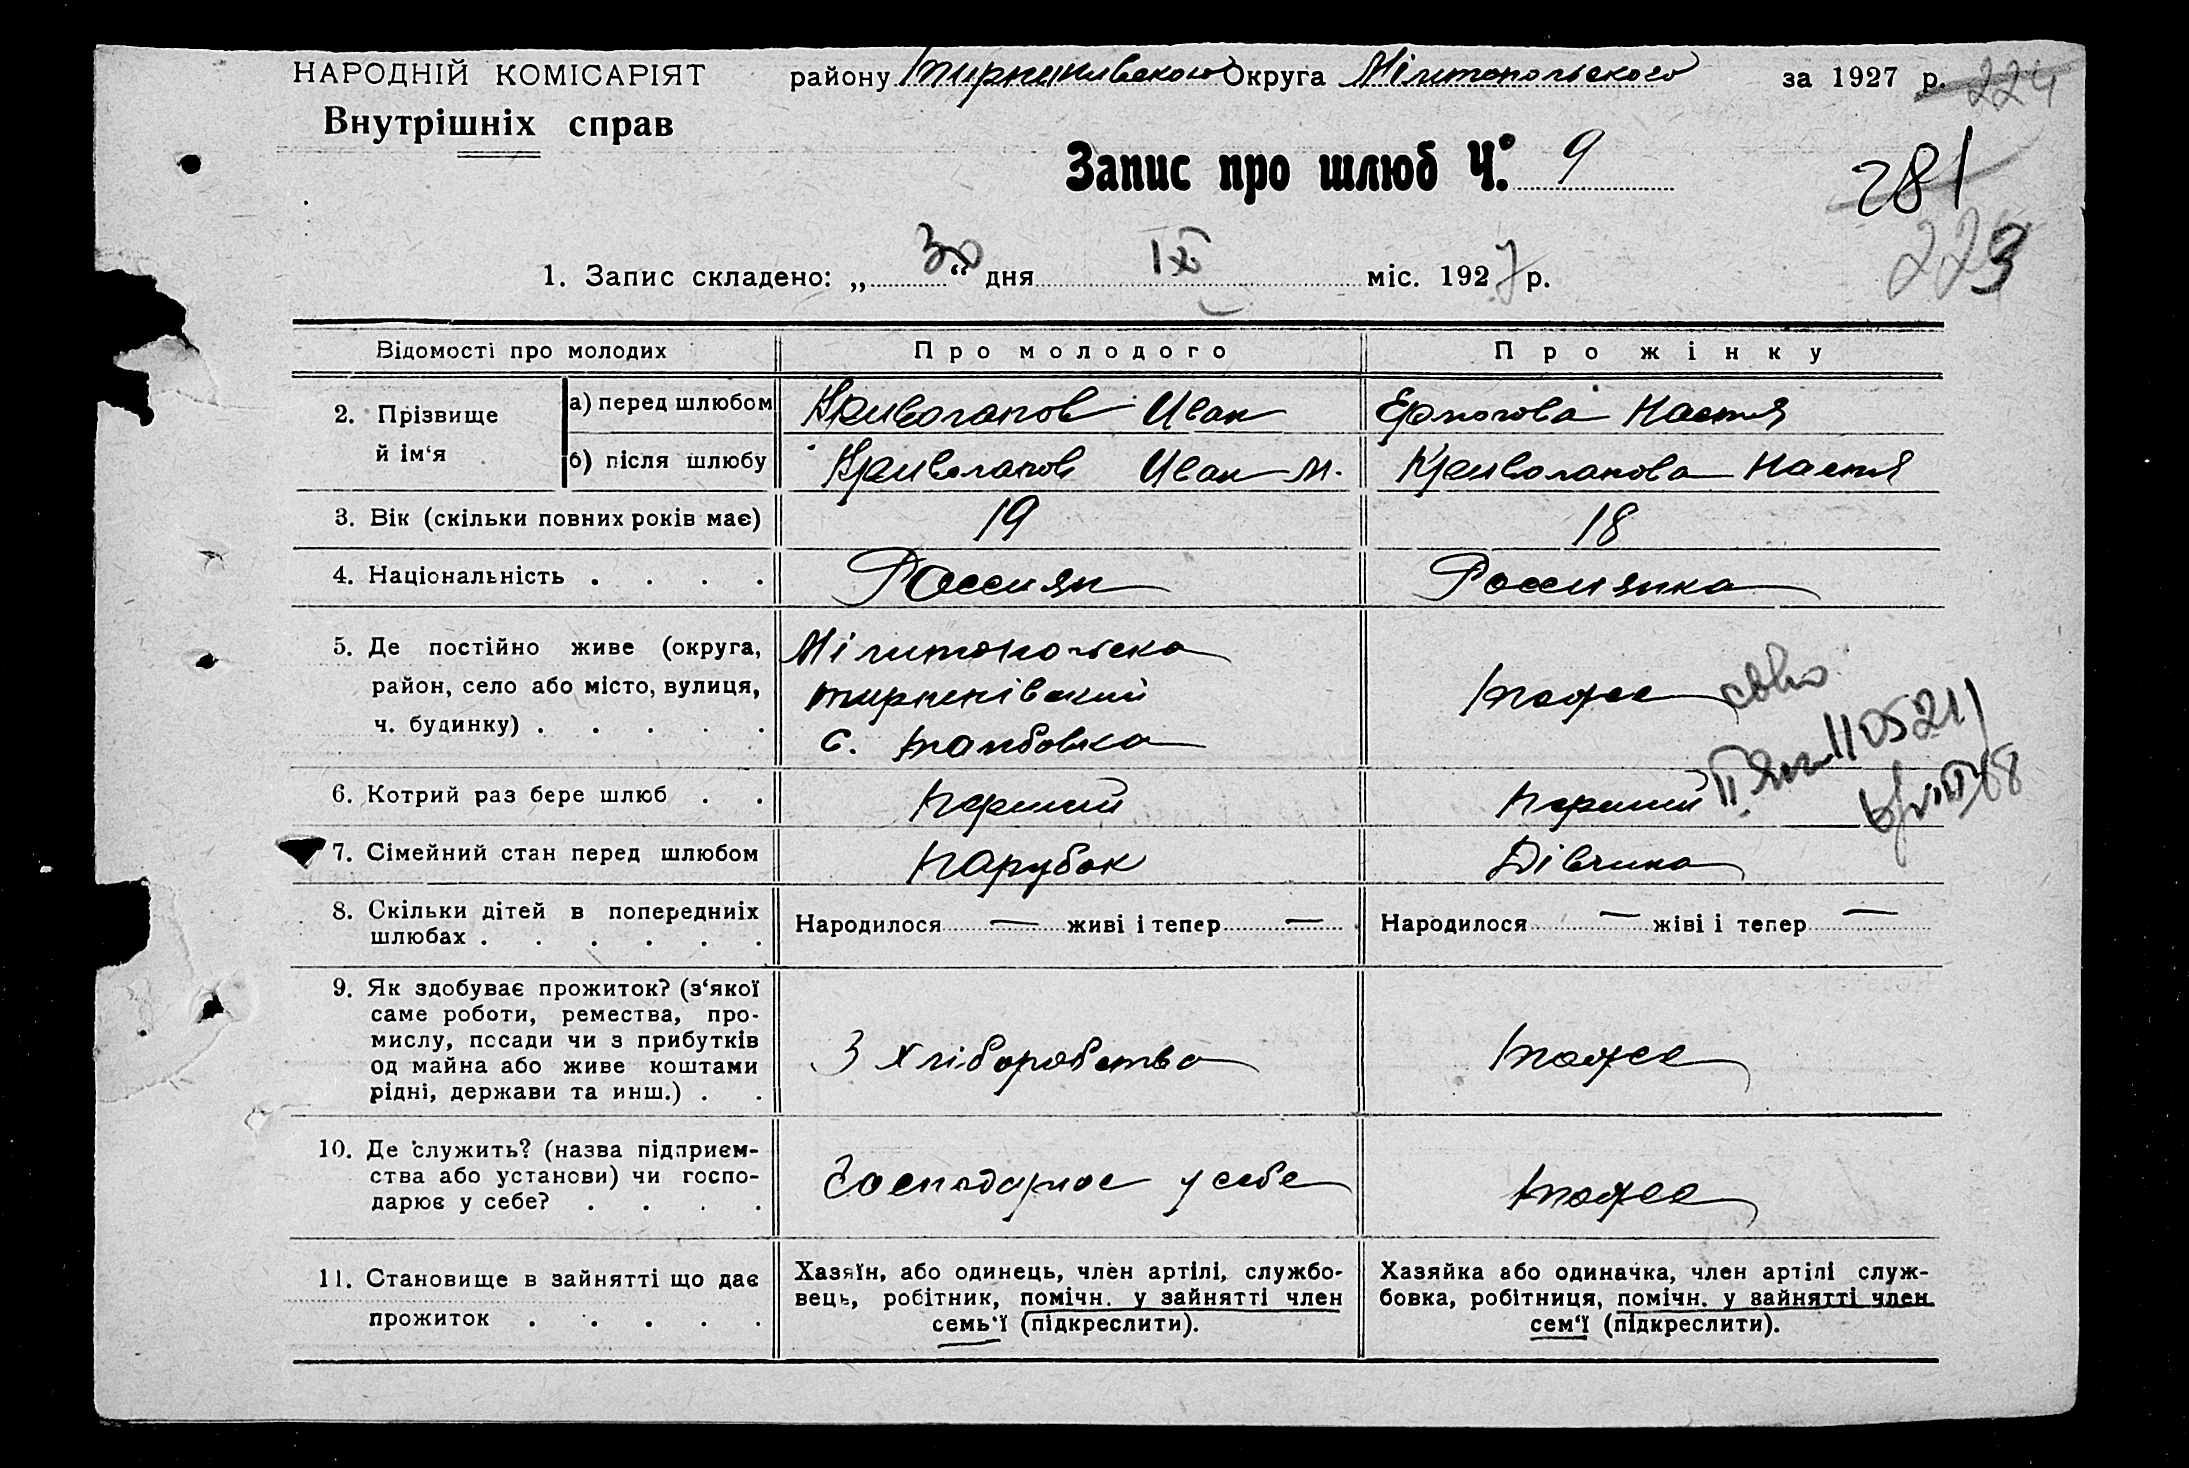 НАРОДНІЙ КОМІСАРІЯТ
Внутрішніх справ
району Округа Мілитопольского за 1927 р. 224
Запис про шлюб Ч. 9
281
223
1. Запис складено: „ 30 “ дня IX міс. 1927 р.
Відомості про молодих Про молодого Про жінку
2. Прізвище й ім‘я
а) перед шлюбом Криволапов Иван Ермолова Настя
б) після шлюбу Криволапов Иван М. Криволапова Настя
3. Вік (скільки повних років має) 19 18
4. Національність . . . . Россиян Россиянка
5. Де постійно живе (округа, Мілитопольска
район, село або місто, вулиця, тирпенівский тоже
ч. будинку) . . . . . с. тамбовка
6. Котрий раз бере шлюб . . перший перший
7. Сімейний стан перед шлюбом парубок Дівчина
8. Скільки дітей в попередниіх Народилося — живі і тепер — Народилося — жіві і тепер —
шлюбах . . . . . .
9. Як здобуває прожиток? (з‘якої
саме роботи, ремества, про-
мислу, посади чи з прибутків З хліборобства тоже
од майна або живе коштами
рідні, держави та инш.) . .
10. Де служить? (назва підприєм-
ства або установи) чи госпо- Господарює у себе тоже
дарює у себе? . . . .
11. Становище в зайнятті що дає
прожиток . . . . .
Хазяїн, або одинець, член артілі, службо-
вець, робітник, помічн. у зайнятті член
семь‘ї (підкреслити).
Хазяйка або одиначка, член артілі служ-
бовка, робітниця, помічн. у зайнятті член
сем‘ї (підкреслити).